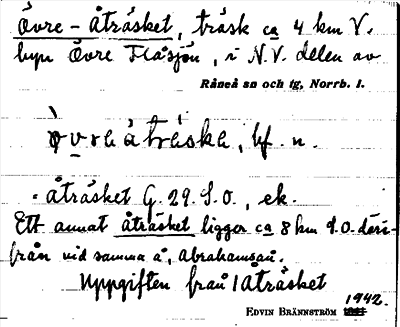 Övre-Åträsket, träsk ca 4 km V.
byn Övre Flåsjön, i N.V. delen av
Råneå sn och tg, Norrb. l.
òvreåtrǻske, bf. n.
Åträsket G. 29. S.O., ek.
Ett annat Åträsket ligger ca 8 km S.O. däri-
från vid samma å, Abrahamsån.
Uppgiften från Åträsket
1942.
EDVIN BRÄNNSTRÖM